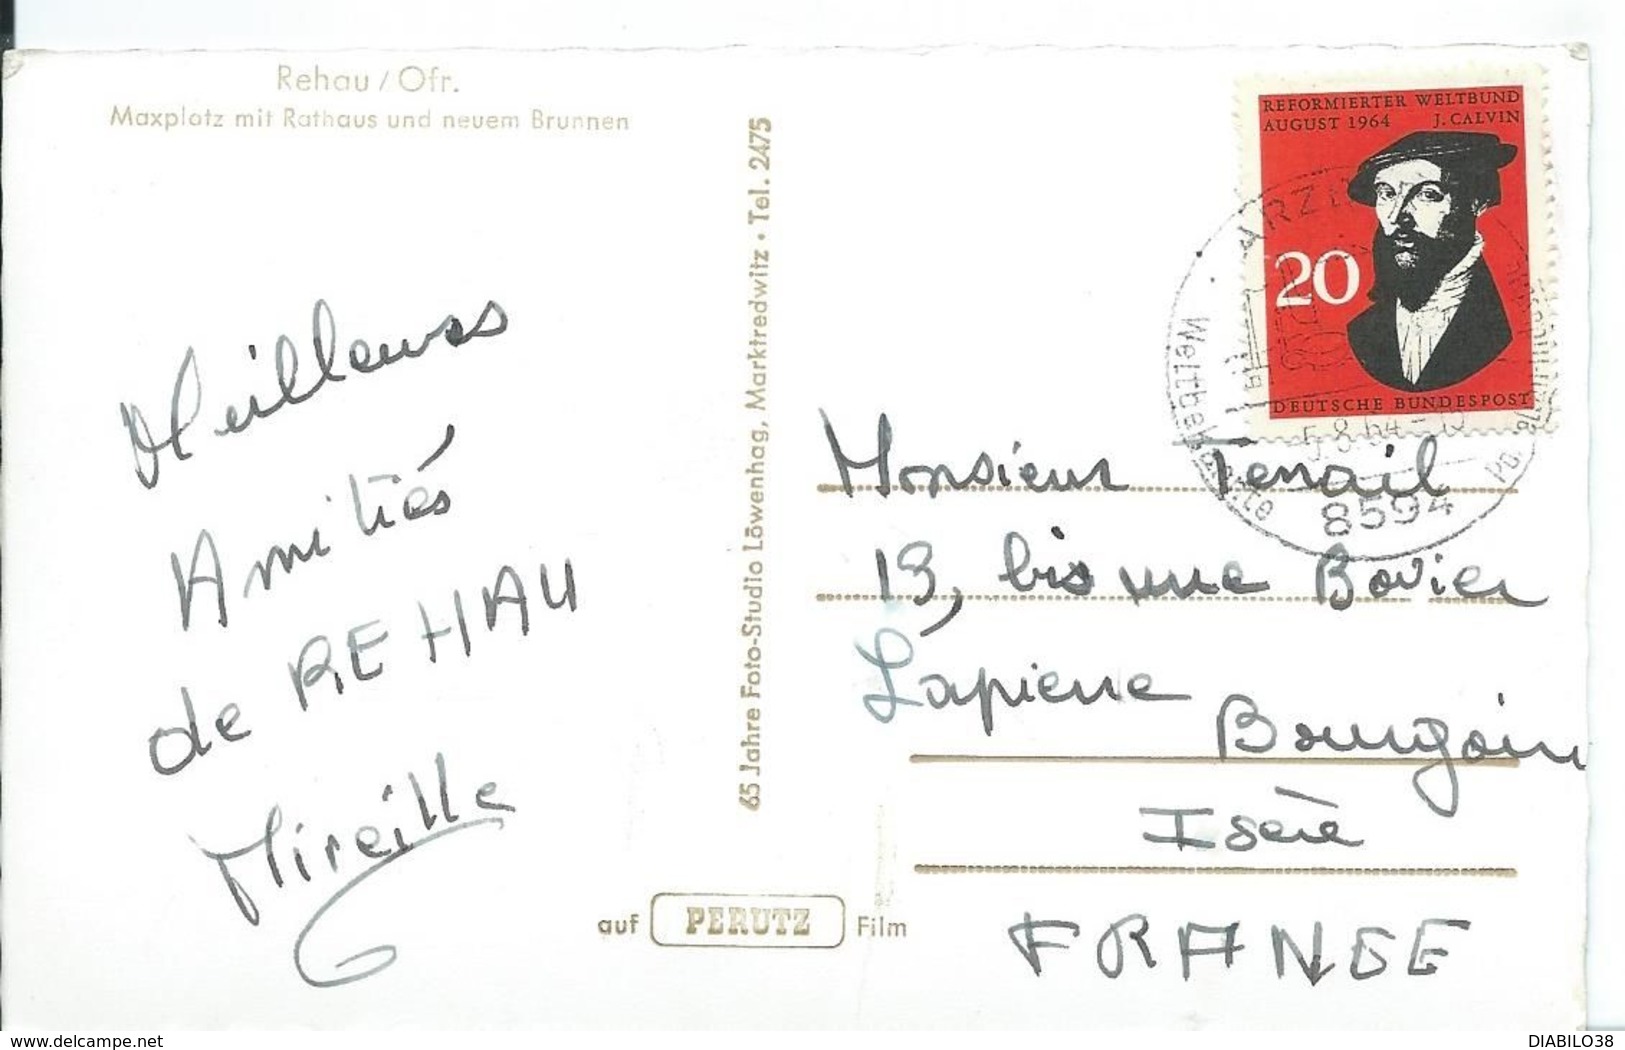 Rehau / Ofr.
Maxplatz mit Rathaus und neuem Brunnen
Meilleures
Amitiés
de REHAU
Mireille
65 Jahre Foto-Studio Löwenhag, Marktredwitz • Tel. 2475
auf PERUTZ Film
REFORMIERTER WELTBUND
AUGUST 1964 J. CALVIN
20
DEUTSCHE BUNDESPOST
ARZB
5.8.64
8594
Monsieur Tenail
13, bis rue Bovier
Lapierre
Bourgoin
Isère
FRANCE
DIABILO38
www.delcampe.net